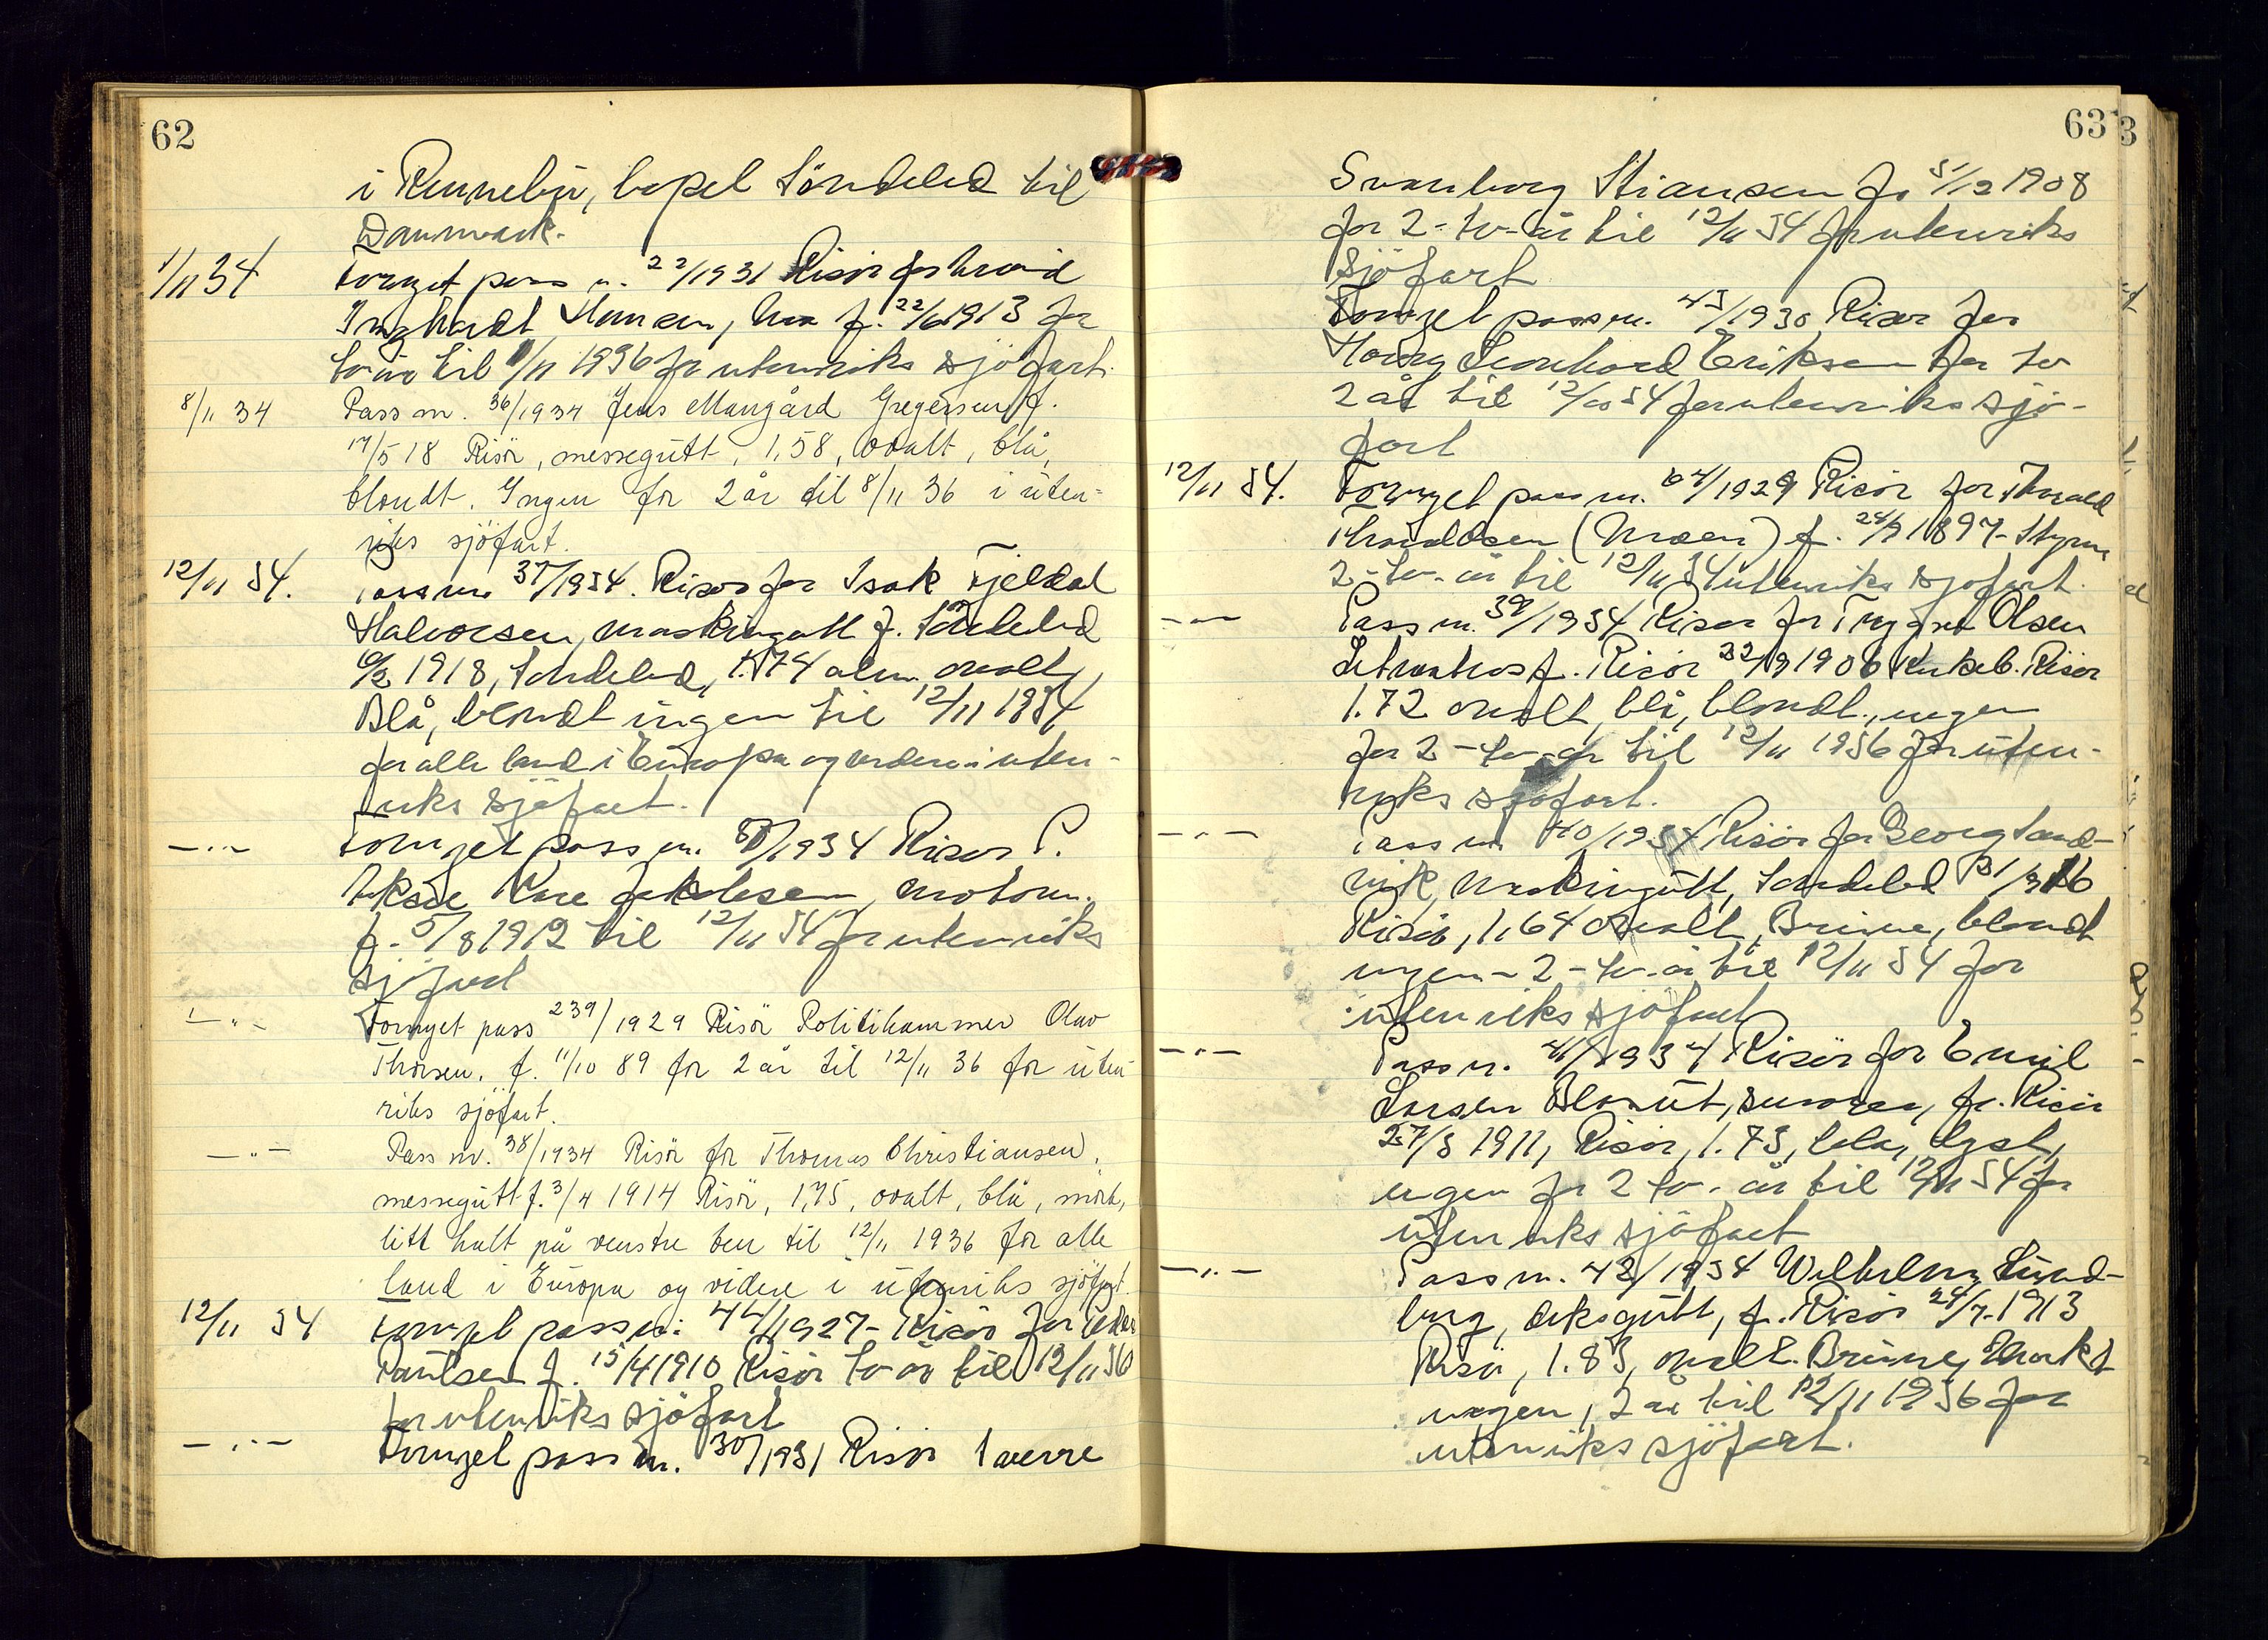 62
i Rennebu, bopel Söndeled til
Danmark.
1/11 34 Fornyet pass n. 22/1931 Risör for
Hansen, f. 22/6 1913 for
to år til 1/11 1936 for utenriks sjöfart.
8/11 34 Pass nr. 36/1934 Jens Mangård Gregersen f.
17/5 18 Risör, messegutt, 1,58, ovalt, blå,
blondt. Ingen for 2 år til 8/11 36 i uten-
riks sjöfart.
12/11 34. Pass nr. 37/1934. Risör for Isak Fjeldal
Halvorsen, maskingutt f. Söndeled
6/2 1918, Söndeled, 1.74 alm. ovalt,
Blå, blondt ingen til 12/11 1934
for alle land i Europa og videre i uten-
riks sjöfart.
-"- Fornyet pass nr. /1934 Risör P.
motorm.
f. 5/8 1912 til 12/11 34 for utenriks
sjöfart
-"- Fornyet pass 239/1929 Risör Politikammer Olav
Thorsen. f. 11/10 89 for 2 år til 12/11 36 for uten-
riks sjöfart.
-"- Pass nr. 38/1934 Risör for Thomas Christiansen,
messegutt f. 3/4 1914 Risör, 1,75, ovalt, blå, mörk,
litt halt på venstre ben til 12/11 1936 for alle
land i Europa og videre i utenriks sjöfart.
12/11 34 Fornyet pass nr. 44/1927 - Risör for Peder
Paulsen f. 15/4 1910 Risör to år til 12/11 36
for utenriks sjöfart
-"- Fornyet pass nr. 30/1931 Risör Sverre
63
Svanborg Stiansen f. 5/12 1908
for 2 - to - år til 12/11 34 for utenriks
sjöfart
Fornyet pass nr. 45/1930 Risör for
Leonhard Eriksen for to
2 år til 34 for utenriks sjö-
fart
12/11 34. Fornyet pass nr. 64/1929 Risör for Thorvald
f. 24/9 1897 - Styrm
2 - to - år til 12/11 34 utenriks sjöfart.
-"- Pass nr. 39/1934 Risör for Trygve Olsen
Letmatros f. Risör 22/9 1906 Risör
1.72 ovalt, blå, blondt, ingen
for 2 - to - år til 12/11 1936 for uten-
riks sjöfart.
-"- Pass nr. 40/1934 Risör for Georg Sand-
vik, maskingutt, Söndeled 31/3 16
Risör, 1,64 ovalt, Brune, blondt
ingen - 2 - to - år til 12/11 34 for
utenriks sjöfart
-"- Pass nr. 41/1934 Risör for Emil
Larsen Blomüt, f. Risör
27/3 1911, Risör, 1.73, blå, lyst,
ingen for 2 to - år til 12/11 34 for
utenriks sjöfart
-"- Pass nr. 42/1934 Wilhelm Lund-
berg, dæksgutt, f. Risör 24/7 - 1913
Risör, 1.83, ovalt. Brune, Mörkt
ingen, 2 år til 12/11 1936 for
utenriks sjöfart.